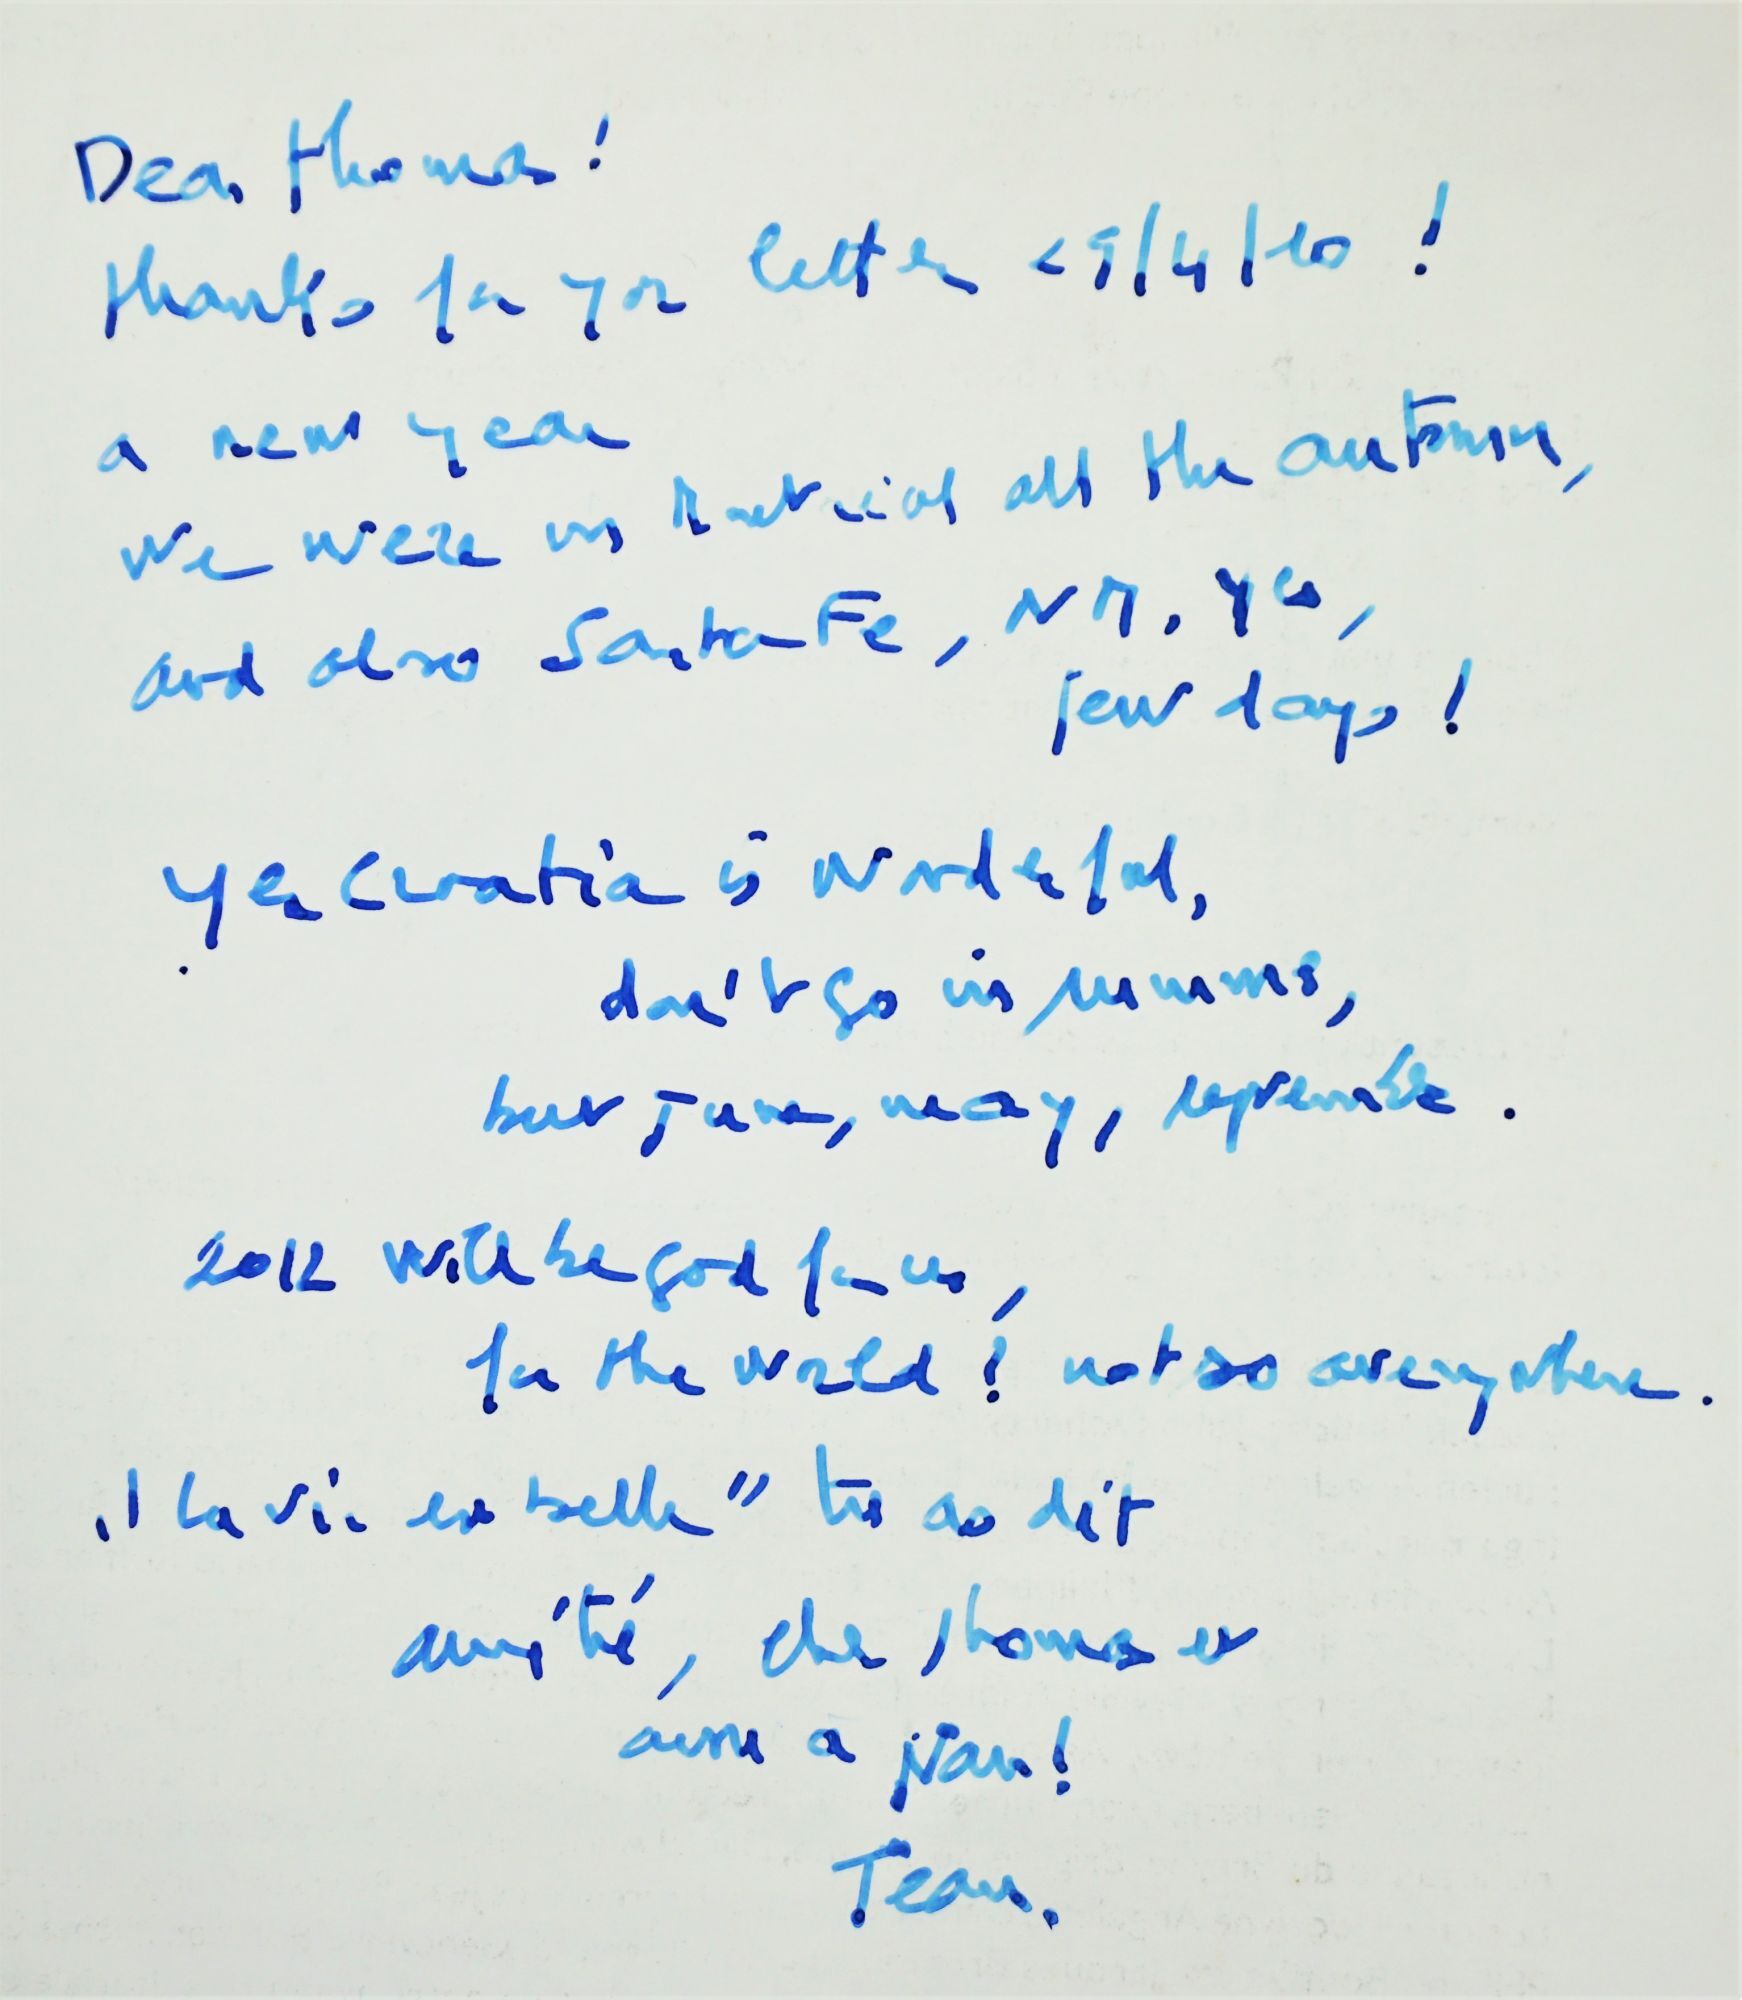 Dear Thomas!
thanks for your letter 29/4/10!
a new year
we were in Montreal all the autumn,
and also Santa Fe, NM. Yes,
few days!
Yes Croatia is wonderful,
don't go in summer,
but june, may, septembe.
2012 will be god for us,
for the world! not so everywhere.
„La vie es belle" tu as dit
amitié, cher Thomas et
aussi a
Jean.